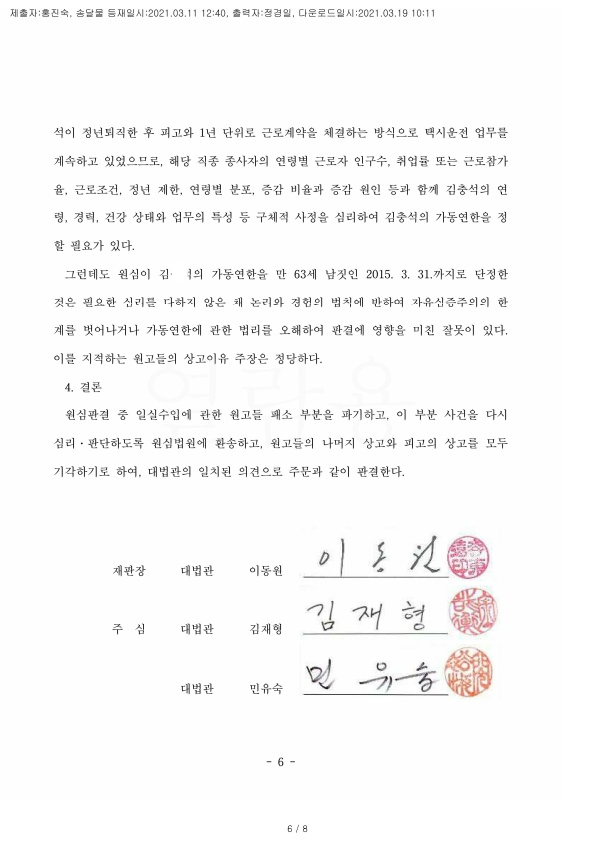 제출자:홍진숙, 송달물 등재일시:2021.03.11 12:40, 출력자:정경일, 다운로드일시:2021.03.19 10:11
석이 정년퇴직한 후 피고와 1년 단위로 근로계약을 체결하는 방식으로 택시운전 업무를
계속하고 있었으므로, 해당 직종 종사자의 연령별 근로자 인구수, 취업률 또는 근로참가
율, 근로조건, 정년 제한, 연령별 분포, 증감 비율과 증감 원인 등과 함께 김충석의 연
령, 경력, 건강 상태와 업무의 특성 등 구체적 사정을 심리하여 김충석의 가동연한을 정
할 필요가 있다.
그런데도 원심이 김 의 가동연한을 만 63세 남짓인 2015. 3. 31.까지로 단정한
것은 필요한 심리를 다하지 않은 채 논리와 경험의 법칙에 반하여 자유심증주의의 한
계를 벗어나거나 가동연한에 관한 법리를 오해하여 판결에 영향을 미친 잘못이 있다.
이를 지적하는 원고들의 상고이유 주장은 정당하다.
4. 결론
원심판결 중 일실수입에 관한 원고들 패소 부분을 파기하고, 이 부분 사건을 다시
심리·판단하도록 원심법원에 환송하고, 원고들의 나머지 상고와 피고의 상고를 모두
기각하기로 하여, 대법관의 일치된 의견으로 주문과 같이 판결한다.
열람용
재판장 대법관 이동원 이동원
주 심 대법관 김재형 김재형
대법관 민유숙 민유숙
- 6 -
6 / 8